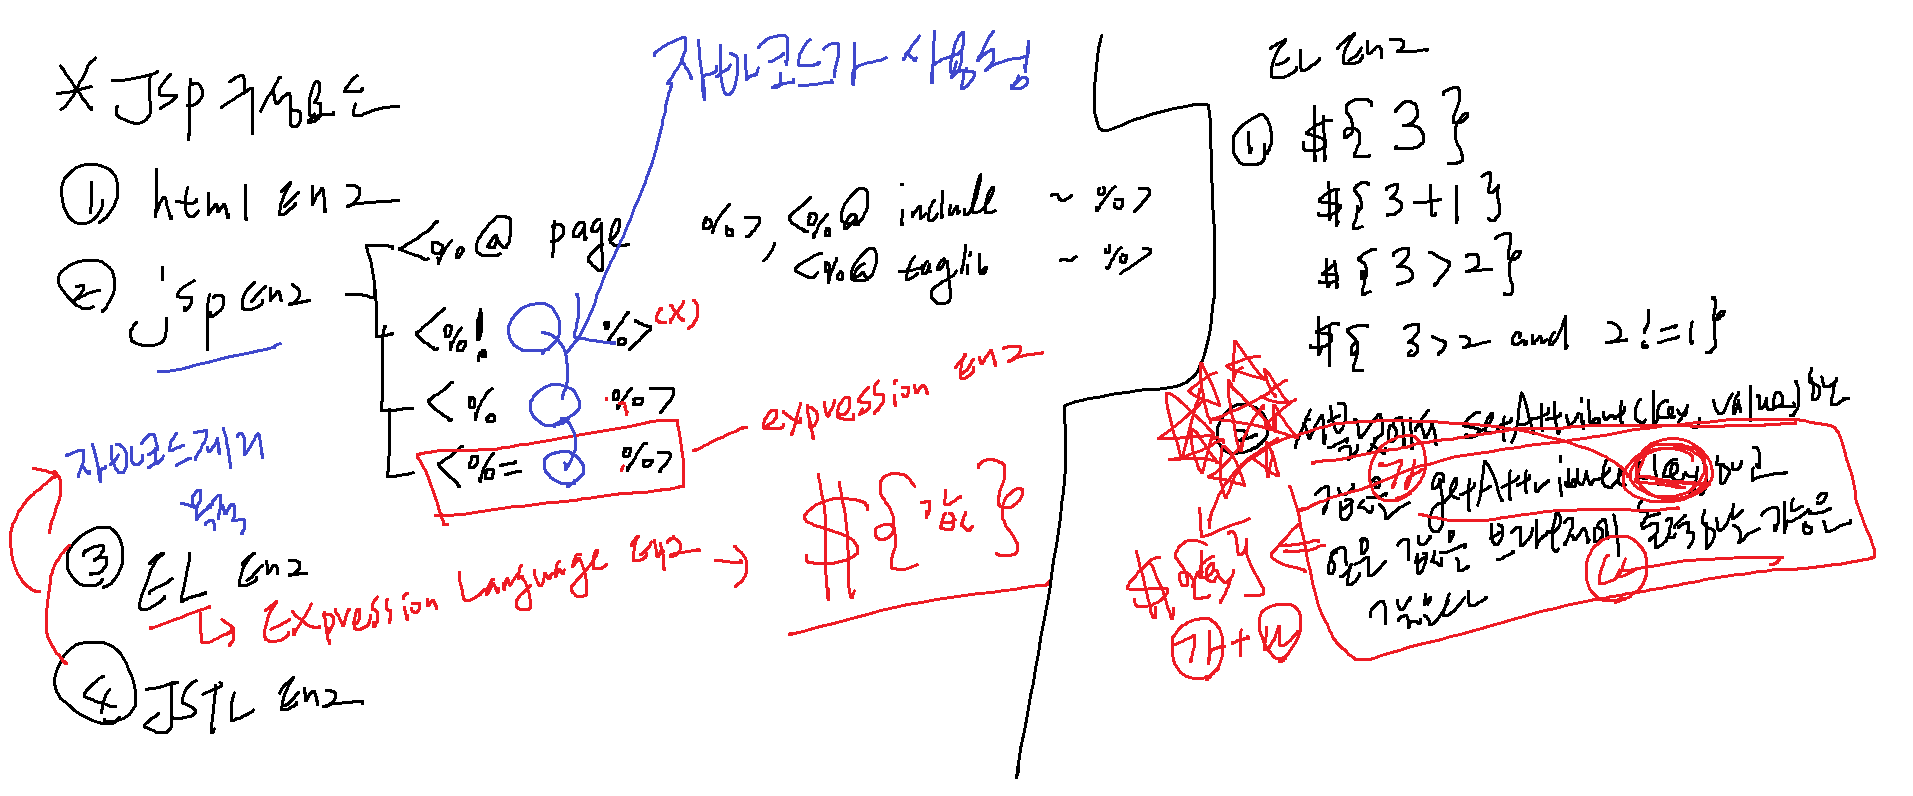 * JSP 구성요소
자바코드가 사용됨
① html 태그
② jsp 태그
<%@ page %>, <%@ include ~ %>
<%@ taglib ~ %>
<%! %> (X)
<% %>
<%= %>
expression 태그
자바코드제거
목적
③ EL 태그
Expression Language 태그 → ${값}
④ JSTL 태그
EL 태그
① ${3}
${3+1}
${3>2}
${3>2 and 2!=1}
② 서블릿에서 setAttribute(key, value)한
값을 getAttribute(key)하고
얻은 값을 브라우저에 출력하는 기능은
가
나
${key}
가+나